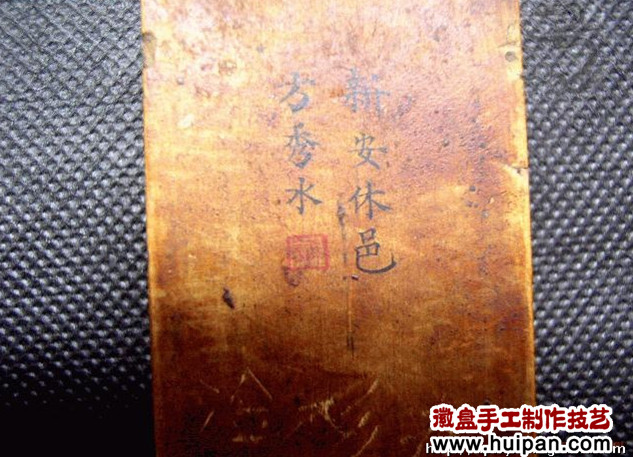 新安休邑
方秀水
徽盒手工制作技艺
www.huipan.com